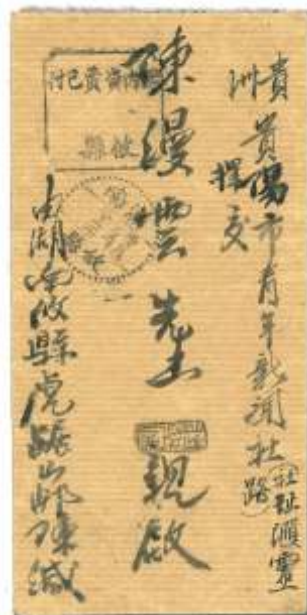 貴州
貴陽市青年新通社(社址灑靈路)
探交
陳縵雲先生 親啟
國內資費已付
攸縣
由湖南攸縣虎踞山郵陳緘